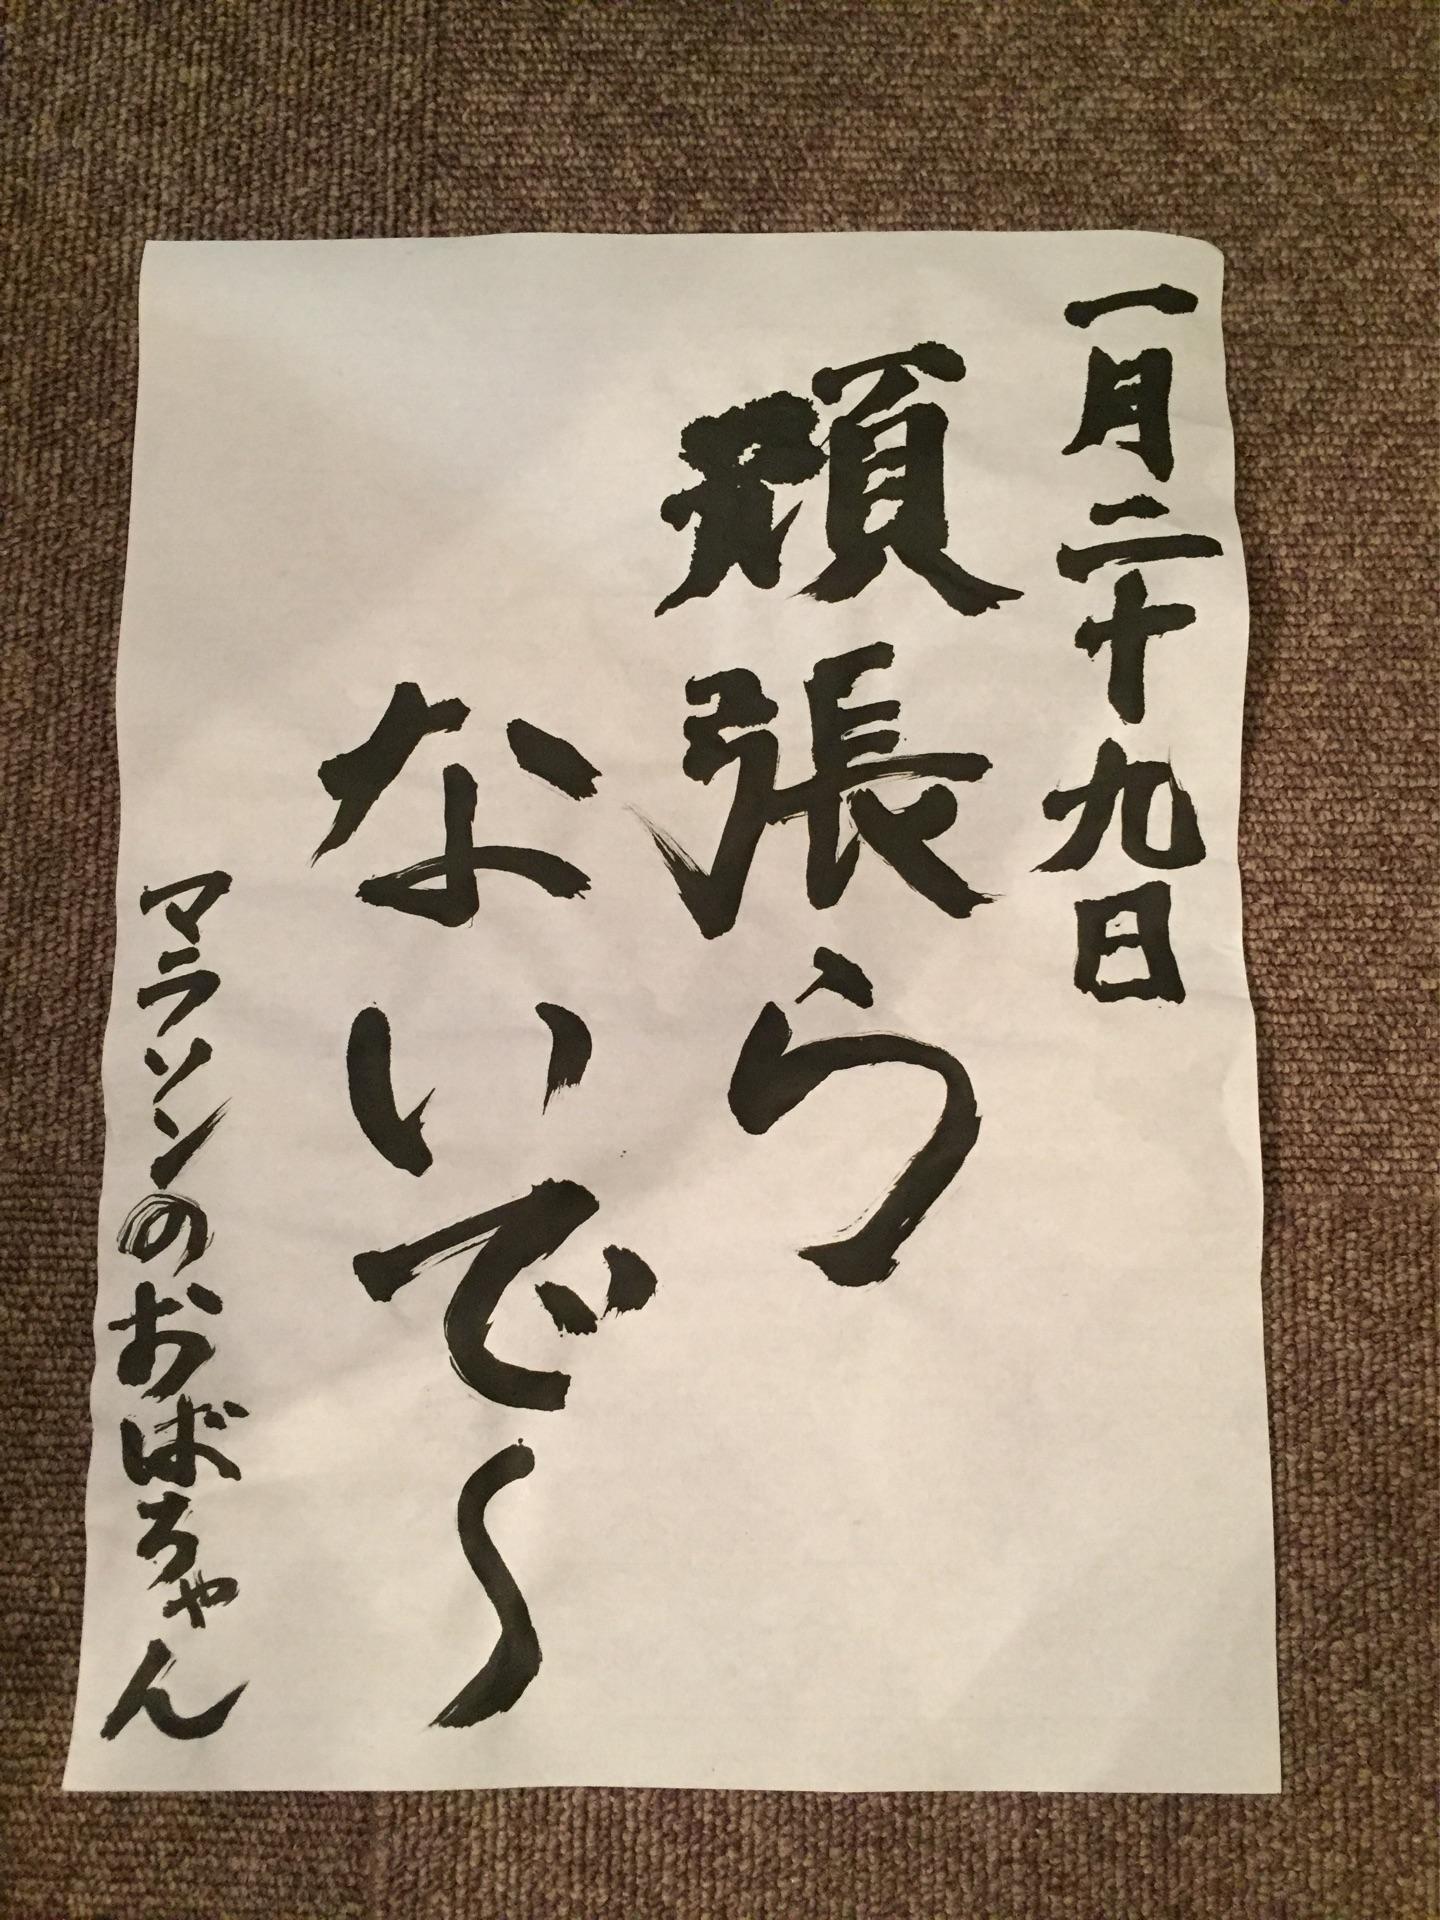 一月二十九日
頑張ら
ないで〜
マラソンのおばちゃん